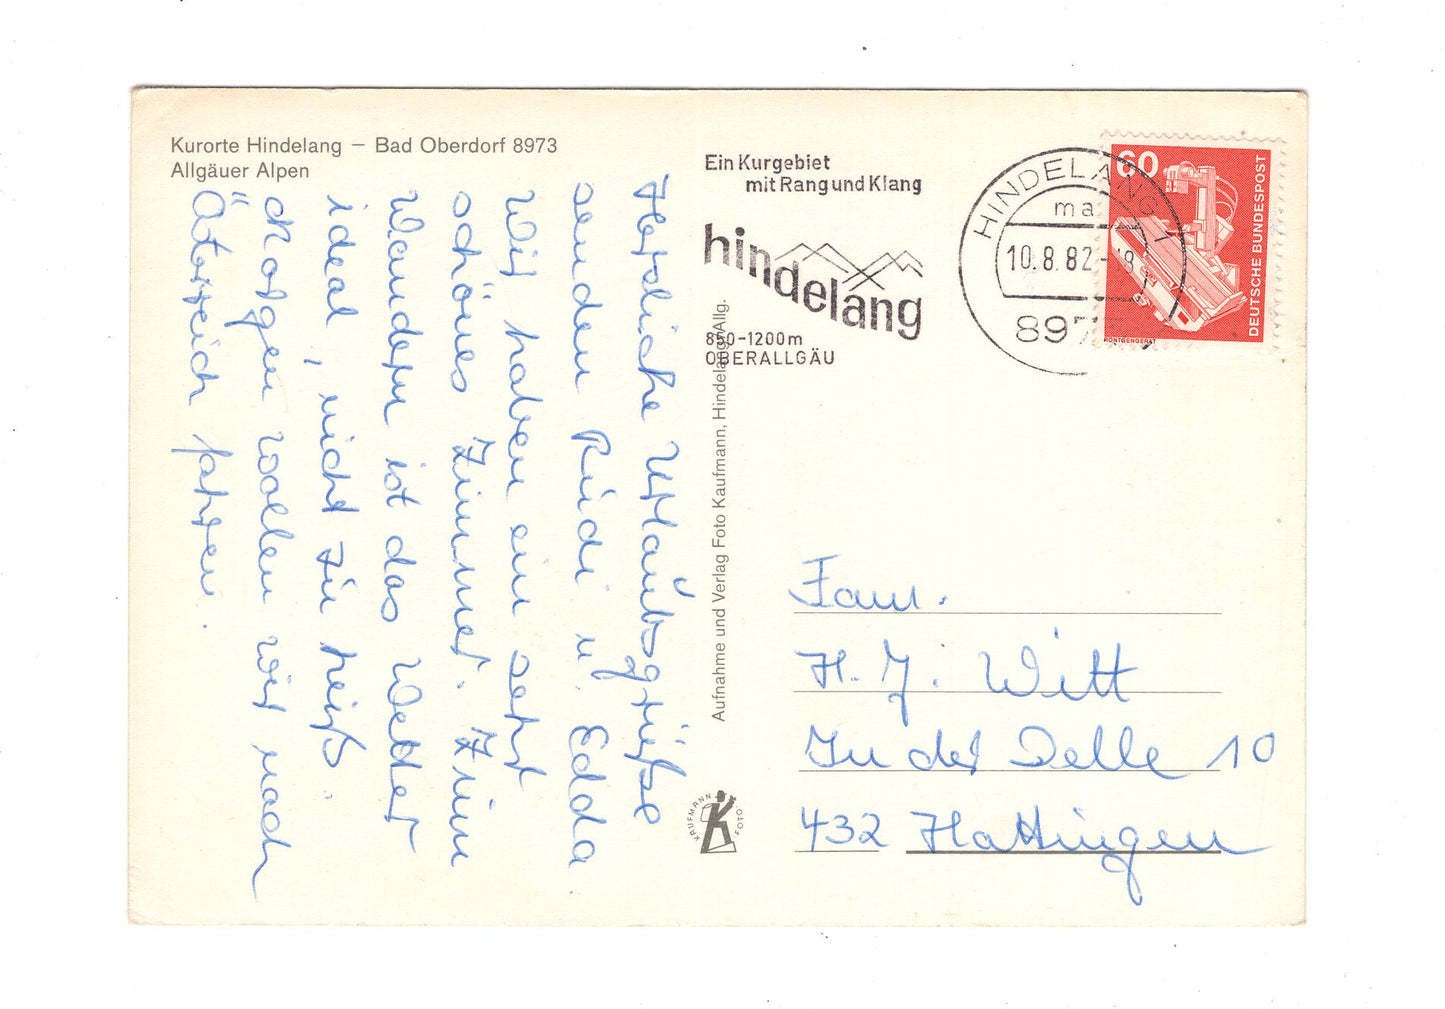 Kurorte Hindelang – Bad Oberdorf 8973
Allgäuer Alpen
Herzliche Urlaubsgrüße
senden Rudi u. Edda.
Wir haben ein sehr
schönes Zimmer. Zum
Wandern ist das Wetter
ideal, nicht zu heiß.
Morgen wollen wir nach
Österreich fahren.
Ein Kurgebiet
mit Rang und Klang
hindelang
850-1200m
OBERALLGÄU
HINDELANG 1
ma
10.8.82-18
8973
60
DEUTSCHE BUNDESPOST
RÖNTGENGERÄT
Aufnahme und Verlag Foto Kaufmann, Hindelang/Allg.
KAUFMANN FOTO
Fam.
H. J. Witt
In der Delle 10
432 Hattingen